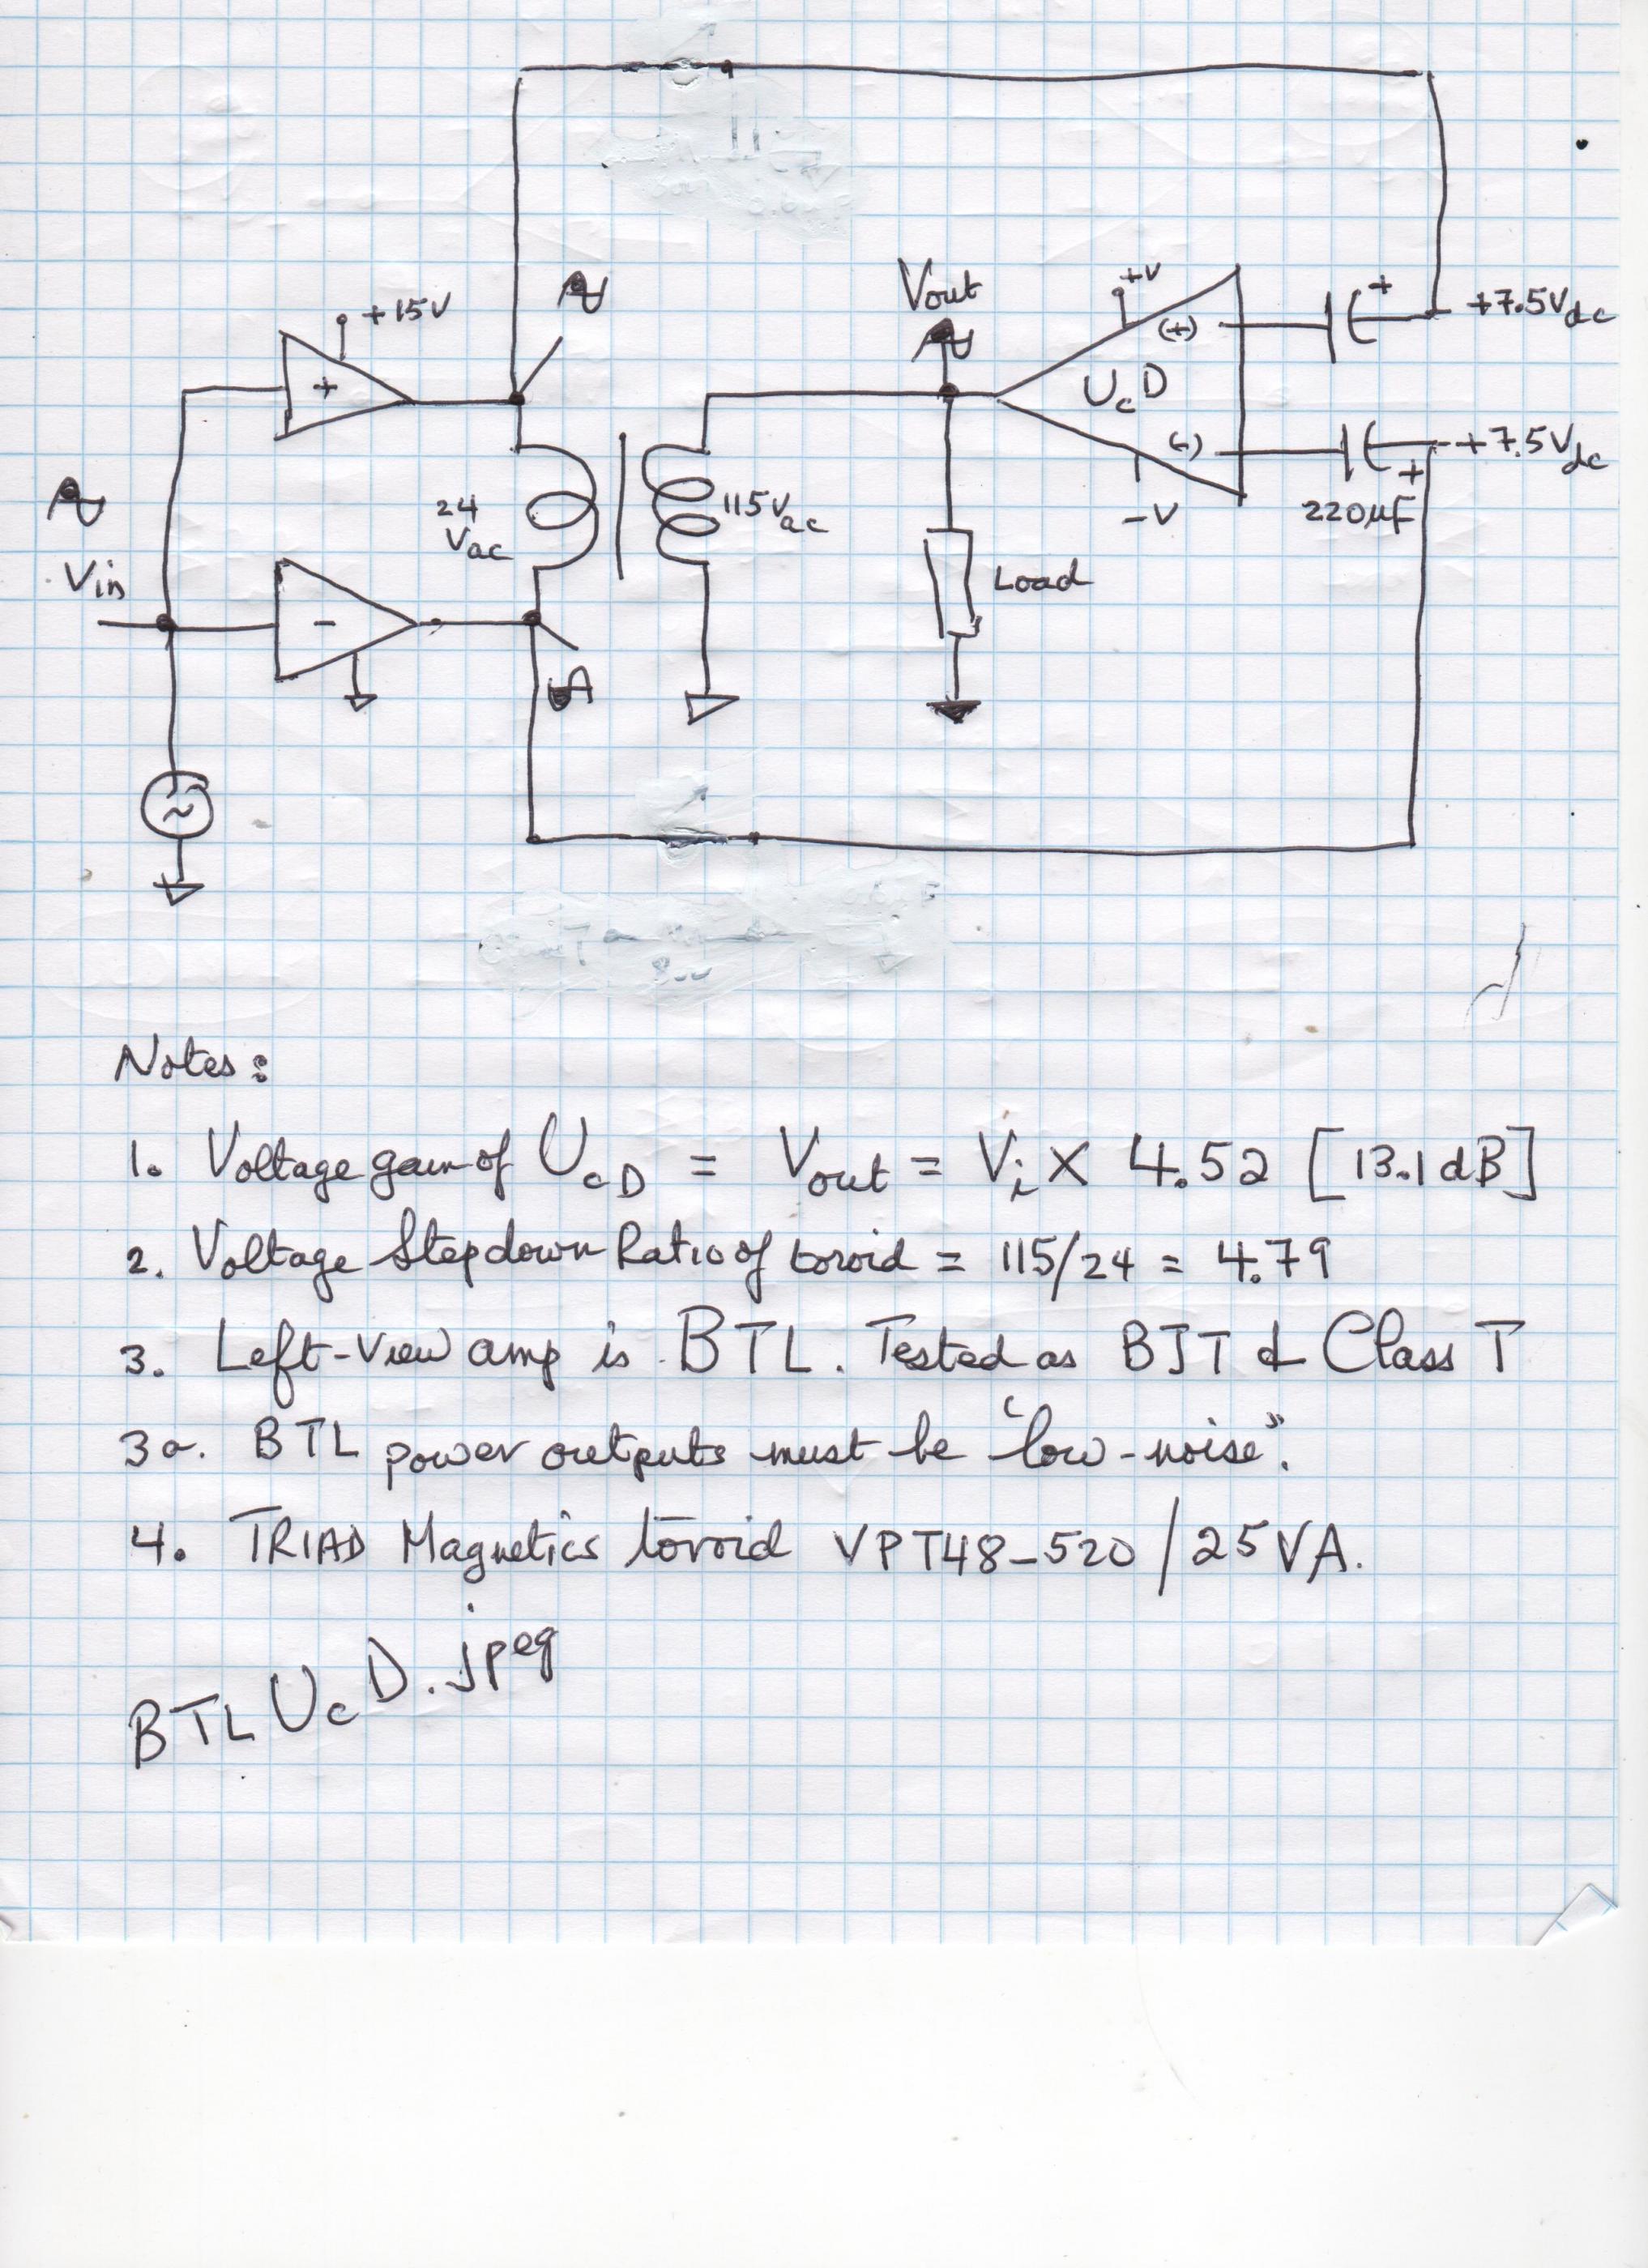 Vout
+V
+
+7.5Vdc
+15V
(+)
+
UcD
(-)
+7.5Vdc
+
24
Vac
115Vac
-V
220µF
Vin
-
Load
~
Notes:
1. Voltage gain of UcD = Vout = Vi X 4.52 [13.1dB]
2. Voltage Stepdown Ratio of toroid = 115/24 = 4.79
3. Left-View amp is BTL. Tested as BJT & Class T
3a. BTL power outputs must be "low-noise".
4. TRIAD Magnetics toroid VPT48-520/25VA.
BTL UcD.jpeg